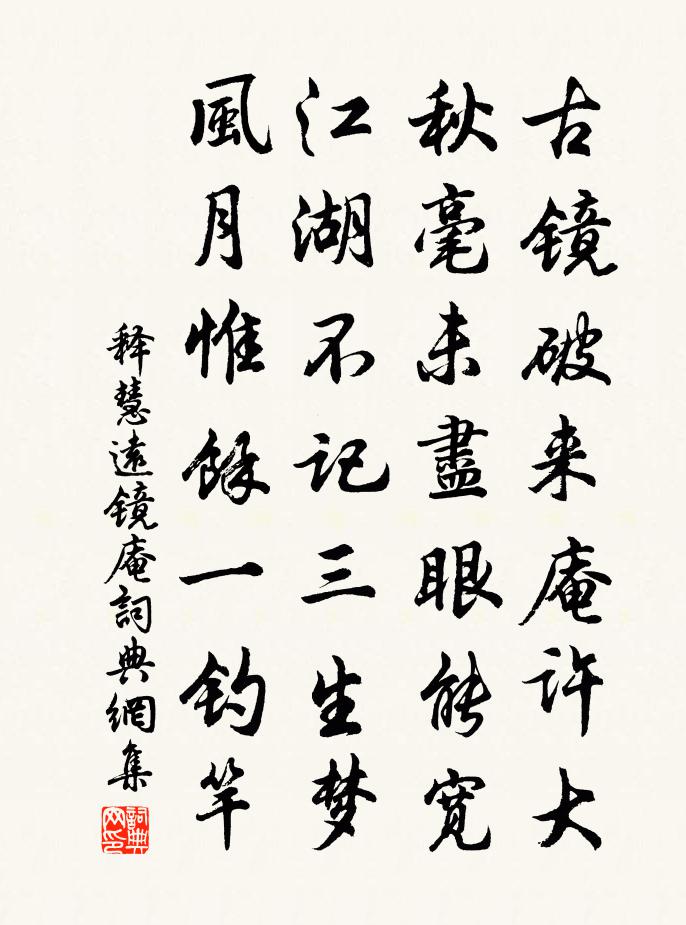 古镜破来庵许大
秋毫未盡眼能宽
江湖不记三生梦
風月惟餘一钓竿
释慧遠镜庵詞典網集
詞典网印